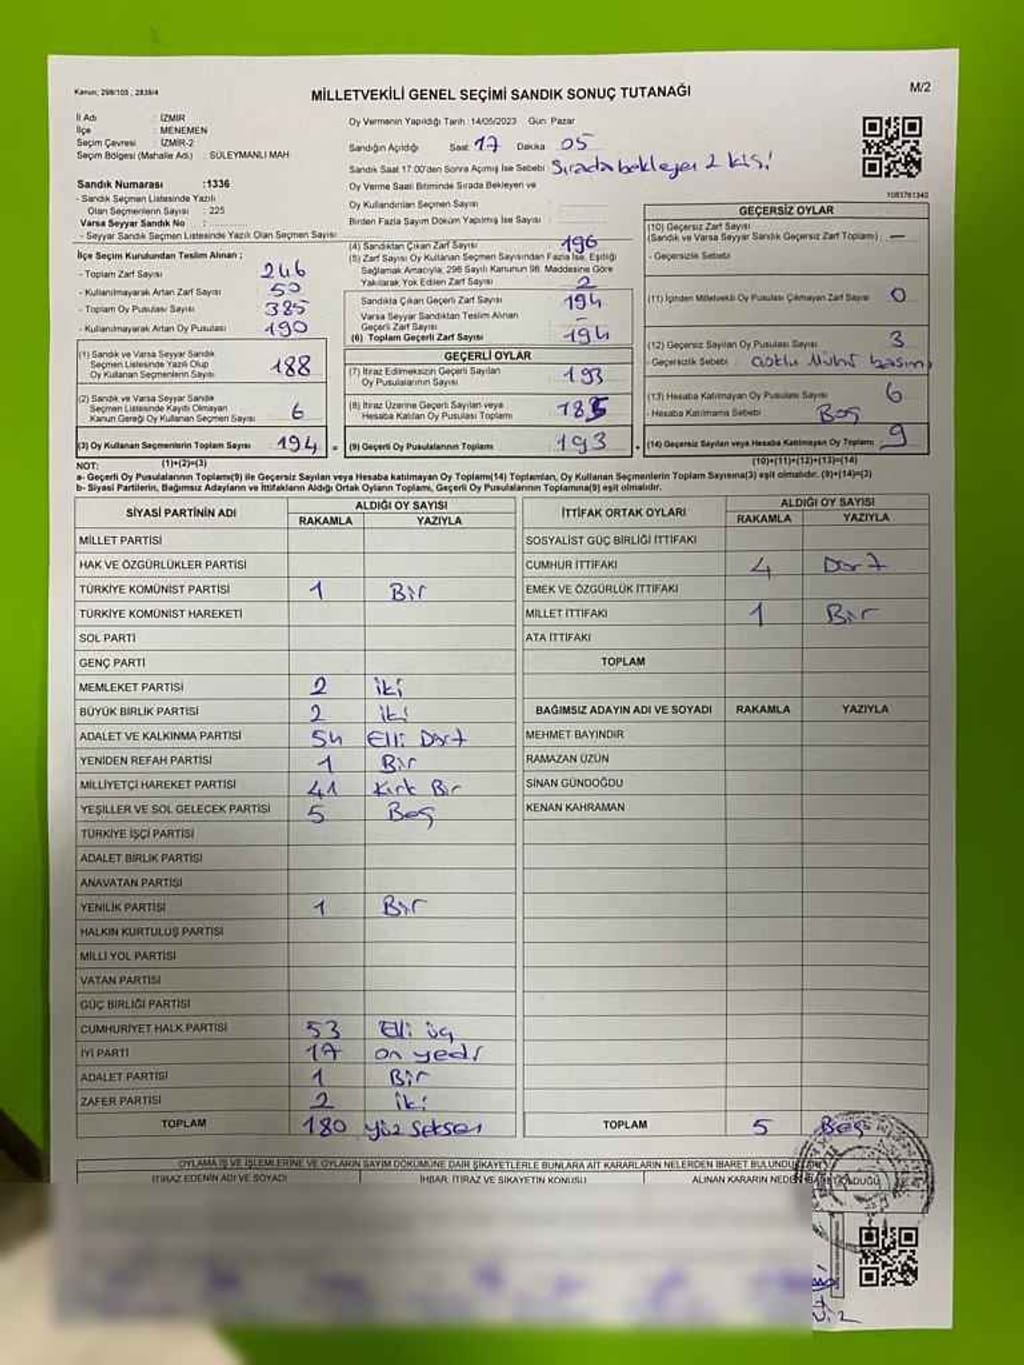 Kanun: 298/105, 2839/4
MİLLETVEKİLİ GENEL SEÇİMİ SANDIK SONUÇ TUTANAĞI
M/2
İl Adı : İZMİR
İlçe : MENEMEN
Seçim Çevresi : İZMİR-2
Seçim Bölgesi (Mahalle Adı) : SÜLEYMANLI MAH
Sandık Numarası :1336
- Sandık Seçmen Listesinde Yazılı
Olan Seçmenlerin Sayısı : 225
Varsa Seyyar Sandık No :
- Seyyar Sandık Seçmen Listesinde Yazılı Olan Seçmen Sayısı
İlçe Seçim Kurulundan Teslim Alınan ;
- Toplam Zarf Sayısı 246
- Kullanılmayarak Artan Zarf Sayısı 50
- Toplam Oy Pusulası Sayısı 385
- Kullanılmayarak Artan Oy Pusulası 190
(1) Sandık ve Varsa Seyyar Sandık
Seçmen Listesinde Yazılı Olup
Oy Kullanan Seçmenlerin Sayısı 188
(2) Sandık ve Varsa Seyyar Sandık
Seçmen Listesinde Kayıtlı Olmayan
Kanun Gereği Oy Kullanan Seçmen Sayısı 6
(3) Oy Kullanan Seçmenlerin Toplam Sayısı 194 =
Oy Vermenin Yapıldığı Tarih :14/05/2023 Gün: Pazar
Sandığın Açıldığı Saat 17 Dakika 05
Sandık Saat 17:00'den Sonra Açılmış İse Sebebi Sırada bekleyen 2 kişi
Oy Verme Saati Bitiminde Sırada Bekleyen ve
Oy Kullandırılan Seçmen Sayısı
Birden Fazla Sayım Döküm Yapılmış İse Sayısı
(4) Sandıktan Çıkan Zarf Sayısı 196
(5) Zarf Sayısı Oy Kullanan Seçmen Sayısından Fazla İse, Eşitliği
Sağlamak Amacıyla, 298 Sayılı Kanunun 98. Maddesine Göre
Yakılarak Yok Edilen Zarf Sayısı 2
Sandıkta Çıkan Geçerli Zarf Sayısı 194
Varsa Seyyar Sandıktan Teslim Alınan
Geçerli Zarf Sayısı -
(6) Toplam Geçerli Zarf Sayısı 194
GEÇERLİ OYLAR
(7) İtiraz Edilmeksizin Geçerli Sayılan
Oy Pusulalarının Sayısı 193
(8) İtiraz Üzerine Geçerli Sayılan veya
Hesaba Katılan Oy Pusulası Toplamı
(9) Geçerli Oy Pusulalarının Toplamı 193 +
1083761340
GEÇERSİZ OYLAR
(10) Geçersiz Zarf Sayısı
(Sandık ve Varsa Seyyar Sandık Geçersiz Zarf Toplamı) : —
- Geçersizlik Sebebi
(11) İçinden Milletvekili Oy Pusulası Çıkmayan Zarf Sayısı 0
(12) Geçersiz Sayılan Oy Pusulası Sayısı 3
- Geçersizlik Sebebi
(13) Hesaba Katılmayan Oy Pusulası Sayısı 6
- Hesaba Katılmama Sebebi Boş
(14) Geçersiz Sayılan veya Hesaba Katılmayan Oy Toplamı 9
NOT: (1)+(2)=(3) (10)+(11)+(12)+(13)=(14)
a- Geçerli Oy Pusulalarının Toplamı(9) ile Geçersiz Sayılan veya Hesaba katılmayan Oy Toplamı(14) Toplamları, Oy Kullanan Seçmenlerin Toplam Sayısına(3) eşit olmalıdır. (9)+(14)=(3)
b- Siyasi Partilerin, Bağımsız Adayların ve İttifakların Aldığı Ortak Oyların Toplamı, Geçerli Oy Pusulalarının Toplamına(9) eşit olmalıdır.
SİYASİ PARTİNİN ADI ALDIĞI OY SAYISI
RAKAMLA YAZIYLA
MİLLET PARTİSİ
HAK VE ÖZGÜRLÜKLER PARTİSİ
TÜRKİYE KOMÜNİST PARTİSİ 1 Bir
TÜRKİYE KOMÜNİST HAREKETİ
SOL PARTİ
GENÇ PARTİ
MEMLEKET PARTİSİ 2 iki
BÜYÜK BİRLİK PARTİSİ 2 iki
ADALET VE KALKINMA PARTİSİ 54 Elli Dört
YENİDEN REFAH PARTİSİ 1 Bir
MİLLİYETÇİ HAREKET PARTİSİ 41 Kırk Bir
YEŞİLLER VE SOL GELECEK PARTİSİ 5 Beş
TÜRKİYE İŞÇİ PARTİSİ
ADALET BİRLİK PARTİSİ
ANAVATAN PARTİSİ
YENİLİK PARTİSİ 1 Bir
HALKIN KURTULUŞ PARTİSİ
MİLLİ YOL PARTİSİ
VATAN PARTİSİ
GÜÇ BİRLİĞİ PARTİSİ
CUMHURİYET HALK PARTİSİ 53 Elli üç
İYİ PARTİ 17 on yedi
ADALET PARTİSİ 1 Bir
ZAFER PARTİSİ 2 iki
TOPLAM 180 yüz Seksen
İTTİFAK ORTAK OYLARI ALDIĞI OY SAYISI
RAKAMLA YAZIYLA
SOSYALİST GÜÇ BİRLİĞİ İTTİFAKI
CUMHUR İTTİFAKI 4 Dört
EMEK VE ÖZGÜRLÜK İTTİFAKI
MİLLET İTTİFAKI 1 Bir
ATA İTTİFAKI
TOPLAM
BAĞIMSIZ ADAYIN ADI VE SOYADI RAKAMLA YAZIYLA
MEHMET BAYINDIR
RAMAZAN ÜZÜN
SİNAN GÜNDOĞDU
KENAN KAHRAMAN
TOPLAM 5 Beş
OYLAMA İŞ VE İŞLEMLERİNE VE OYLARIN SAYIM DÖKÜMÜNE DAİR ŞİKAYETLERLE BUNLARA AİT KARARLARIN NELERDEN İBARET BULUNDUĞU
İTİRAZ EDENİN ADI VE SOYADI İHBAR, İTİRAZ VE ŞİKAYETİN KONUSU ALINAN KARARIN NEDEN İBARET OLDUĞU